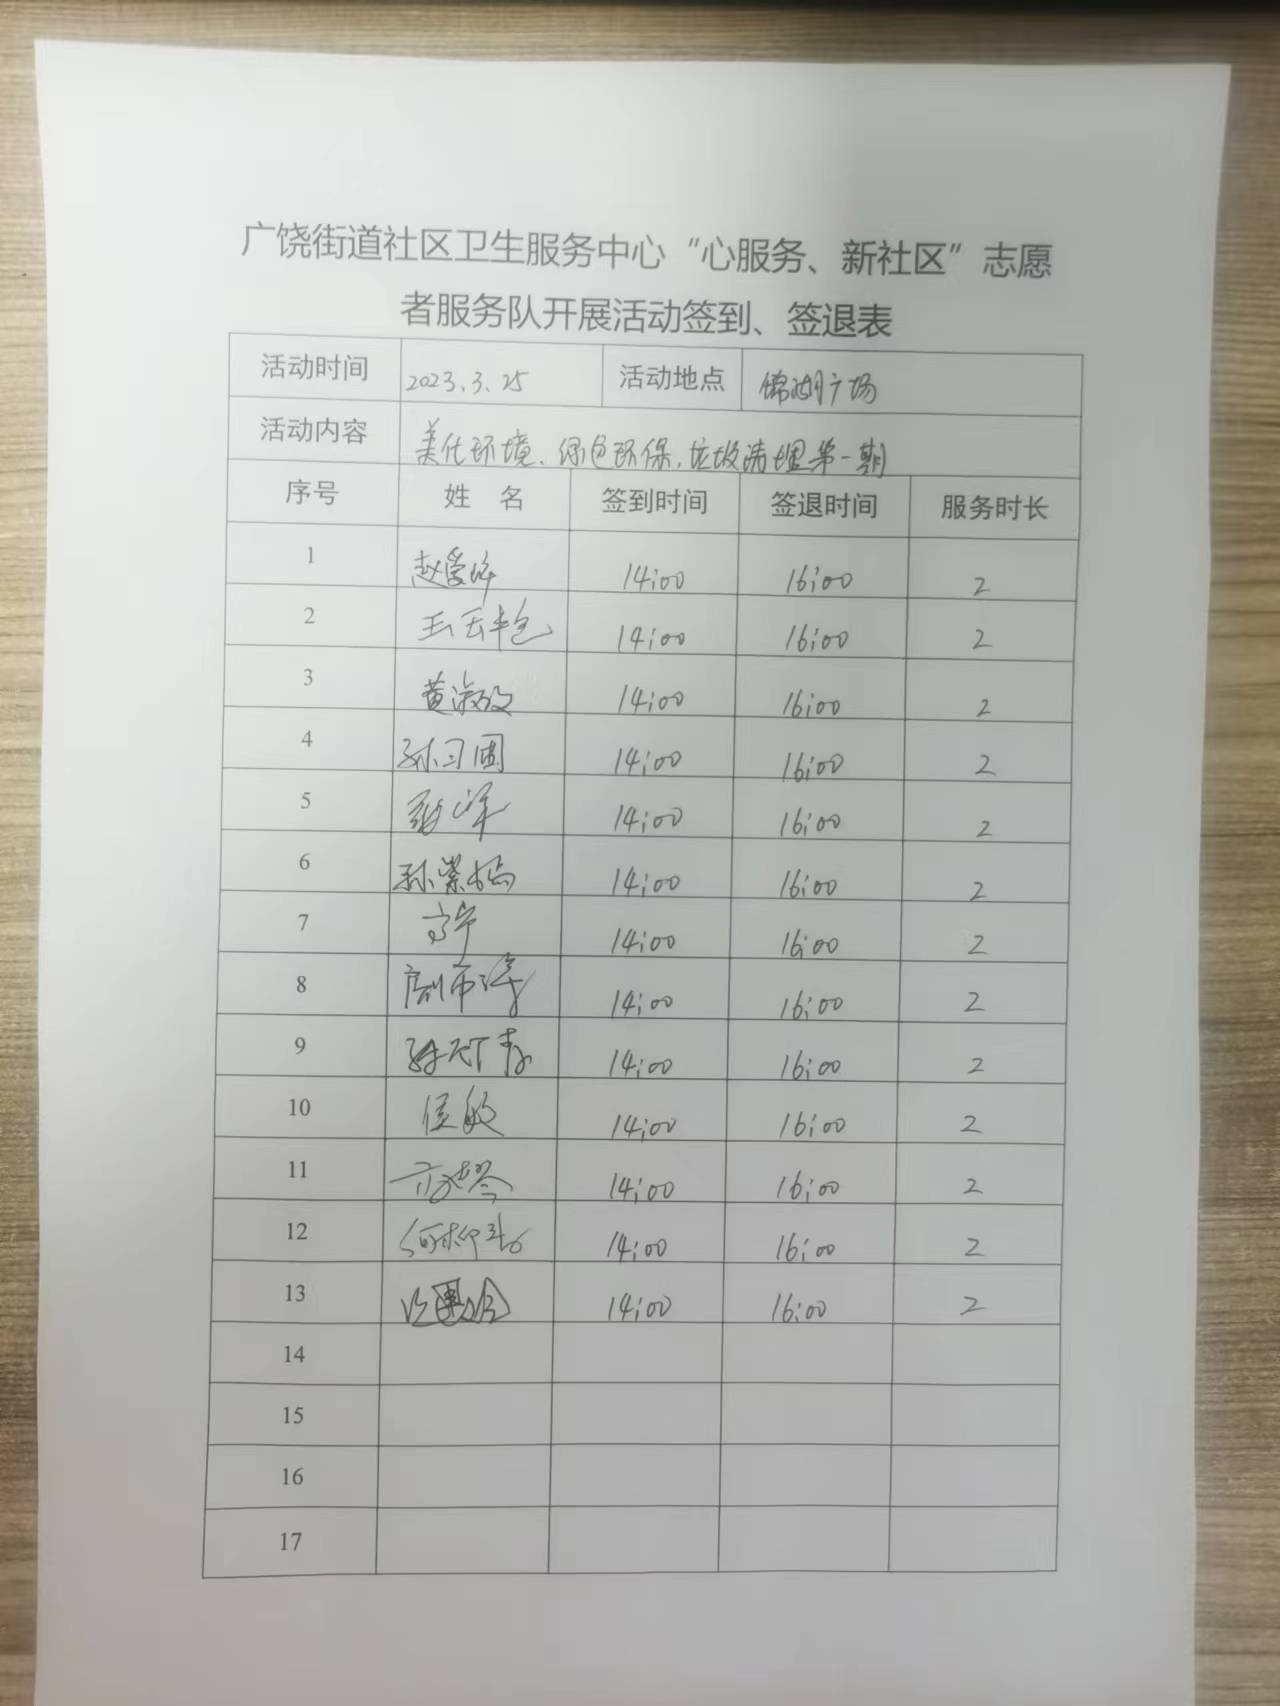 广饶街道社区卫生服务中心“心服务、新社区”志愿
者服务队开展活动签到、签退表
活动时间 2023.3.25 活动地点 锦湖广场
活动内容 美化环境、绿色环保、垃圾清理第一期
序号 姓 名 签到时间 签退时间 服务时长
1 14:00 16:00 2
2 14:00 16:00 2
3 黄淑玫 14:00 16:00 2
4 孙习国 14:00 16:00 2
5 14:00 16:00 2
6 孙崇梅 14:00 16:00 2
7 高宁 14:00 16:00 2
8 14:00 16:00 2
9 14:00 16:00 2
10 侯敏 14:00 16:00 2
11 14:00 16:00 2
12 14:00 16:00 2
13 14:00 16:00 2
14
15
16
17